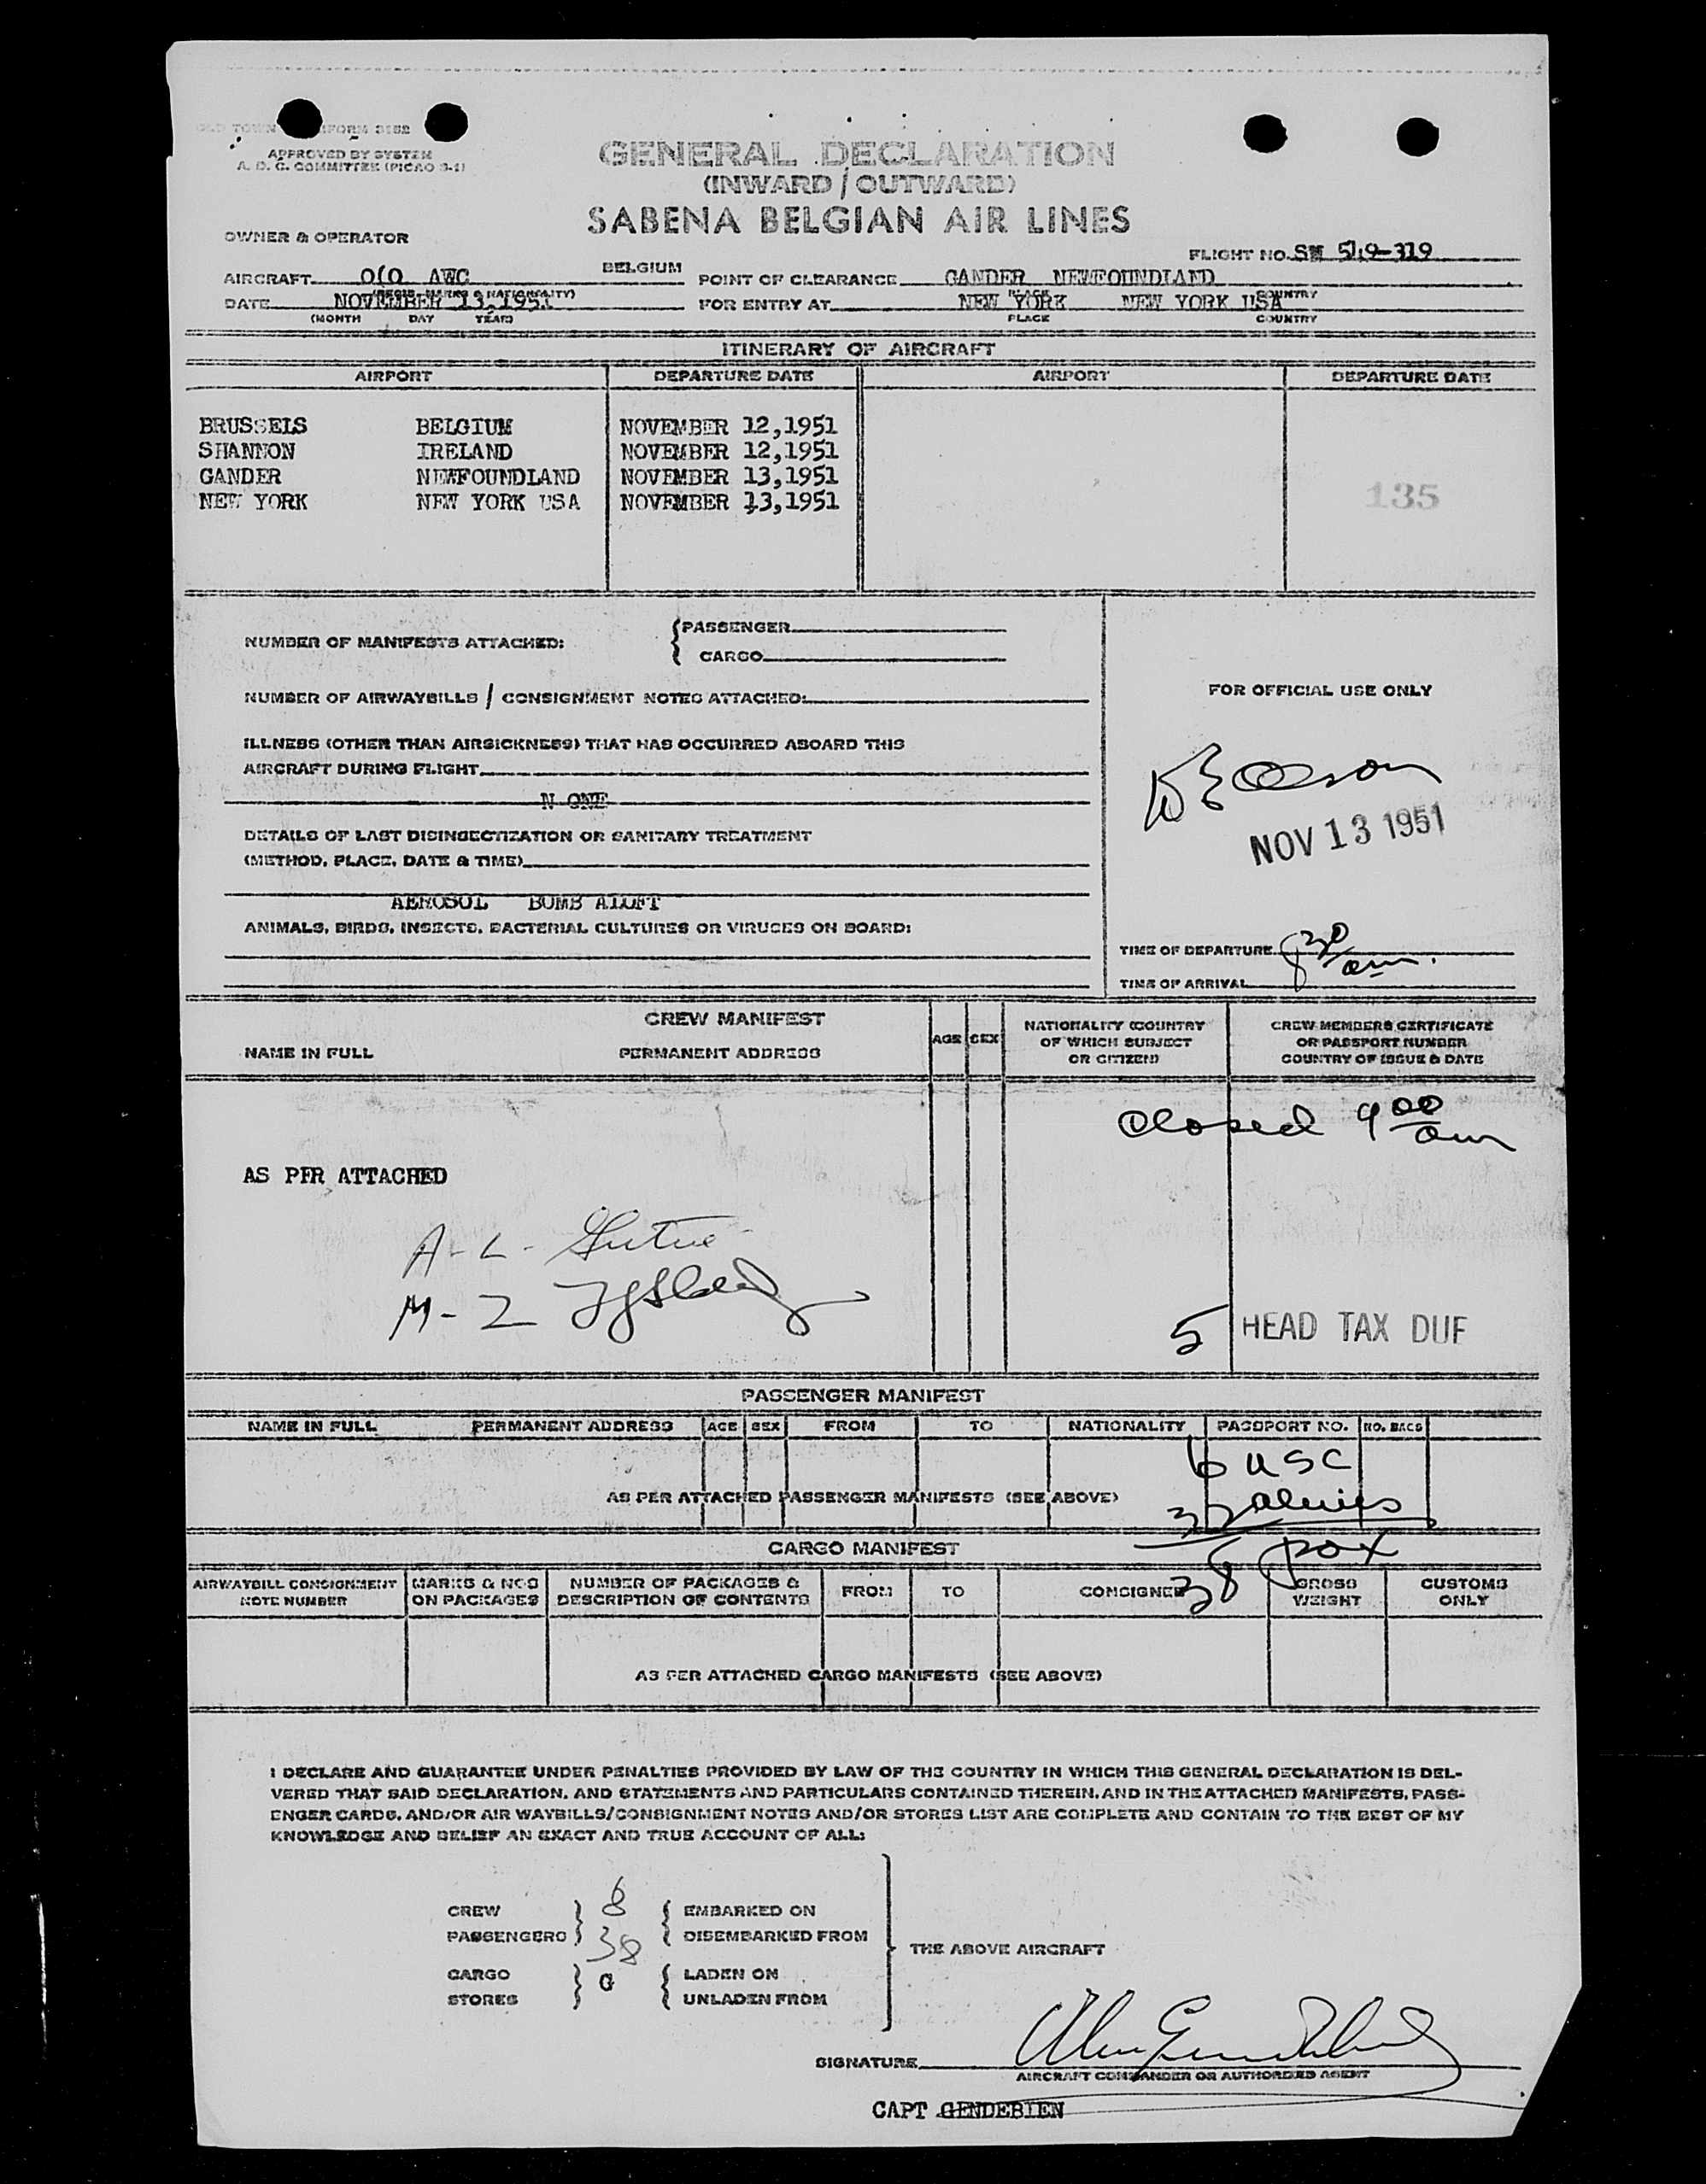 OLD TOWN FORM 3182
APPROVED BY SYSTEM
A. O. C. COMMITTEE (PICAO 9-1)
GENERAL DECLARATION
(INWARD / OUTWARD)
SABENA BELGIAN AIR LINES
OWNER & OPERATOR
FLIGHT NO. SN 549-319
AIRCRAFT OO AWC BELGIUM POINT OF CLEARANCE GANDER NEWFOUNDLAND
(REGIS. MARKS & NATIONALITY) PLACE COUNTRY
DATE NOVEMBER 13,1951 FOR ENTRY AT NEW YORK NEW YORK USA
(MONTH DAY YEAR) PLACE COUNTRY
ITINERARY OF AIRCRAFT
AIRPORT DEPARTURE DATE AIRPORT DEPARTURE DATE
BRUSSELS BELGIUM NOVEMBER 12,1951
SHANNON IRELAND NOVEMBER 12,1951
GANDER NEWFOUNDLAND NOVEMBER 13,1951
NEW YORK NEW YORK USA NOVEMBER 13,1951
135
NUMBER OF MANIFESTS ATTACHED: PASSENGER
CARGO
NUMBER OF AIRWAYBILLS / CONSIGNMENT NOTES ATTACHED:
FOR OFFICIAL USE ONLY
ILLNESS (OTHER THAN AIRSICKNESS) THAT HAS OCCURRED ABOARD THIS
AIRCRAFT DURING FLIGHT
N ONE
DETAILS OF LAST DISINSECTIZATION OR SANITARY TREATMENT
(METHOD, PLACE, DATE & TIME)
NOV 13 1951
AEROSOL BOMB ALOFT
ANIMALS, BIRDS, INSECTS, BACTERIAL CULTURES OR VIRUSES ON BOARD:
TIME OF DEPARTURE 8 30 am.
TIME OF ARRIVAL
CREW MANIFEST
NAME IN FULL PERMANENT ADDRESS AGE SEX NATIONALITY (COUNTRY
OF WHICH SUBJECT
OR CITIZEN) CREW MEMBERS CERTIFICATE
OR PASSPORT NUMBER
COUNTRY OF ISSUE & DATE
Closed 9 00 am
AS PER ATTACHED
5 HEAD TAX DUE
PASSENGER MANIFEST
NAME IN FULL PERMANENT ADDRESS AGE SEX FROM TO NATIONALITY PASSPORT NO. NO. BAGS
6 USC
AS PER ATTACHED PASSENGER MANIFESTS (SEE ABOVE)
32 aliens
38 pax
CARGO MANIFEST
AIRWAYBILL CONSIGNMENT
NOTE NUMBER MARKS & NOS
ON PACKAGES NUMBER OF PACKAGES &
DESCRIPTION OF CONTENTS FROM TO CONSIGNEE GROSS
WEIGHT CUSTOMS
ONLY
AS PER ATTACHED CARGO MANIFESTS (SEE ABOVE)
I DECLARE AND GUARANTEE UNDER PENALTIES PROVIDED BY LAW OF THE COUNTRY IN WHICH THIS GENERAL DECLARATION IS DEL-
VERED THAT SAID DECLARATION, AND STATEMENTS AND PARTICULARS CONTAINED THEREIN, AND IN THE ATTACHED MANIFESTS, PASS-
ENGER CARDS, AND/OR AIR WAYBILLS/CONSIGNMENT NOTES AND/OR STORES LIST ARE COMPLETE AND CONTAIN TO THE BEST OF MY
KNOWLEDGE AND BELIEF AN EXACT AND TRUE ACCOUNT OF ALL:
CREW 8 EMBARKED ON
PASSENGERS 38 DISEMBARKED FROM
THE ABOVE AIRCRAFT
CARGO 0 LADEN ON
STORES UNLADEN FROM
SIGNATURE
AIRCRAFT COMMANDER OR AUTHORIZED AGENT
CAPT GENDEBIEN